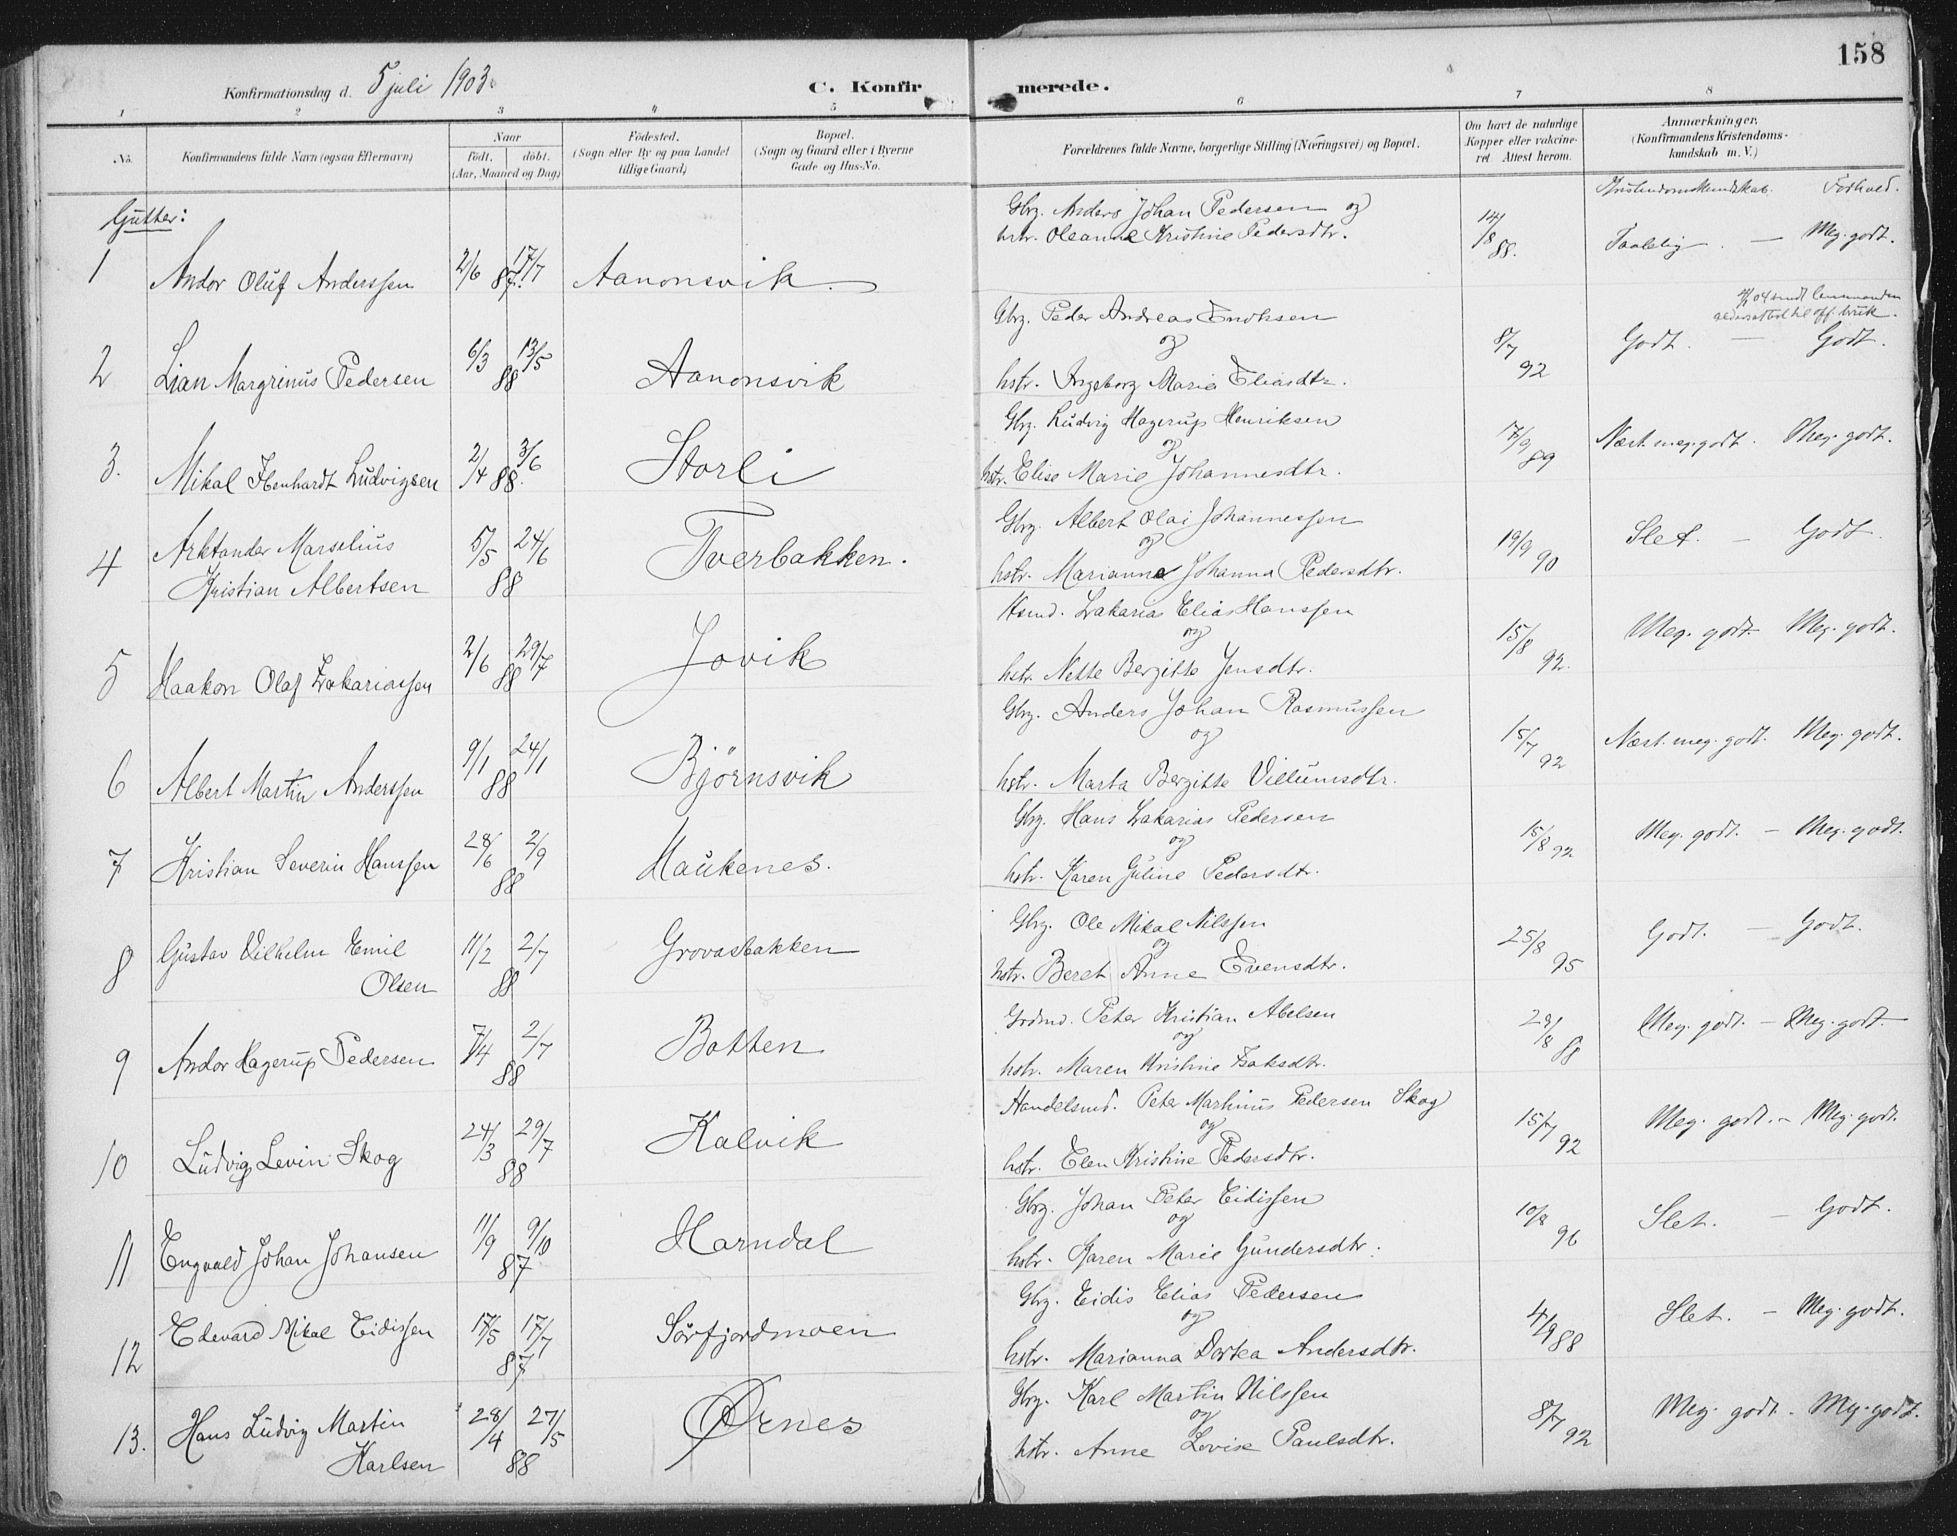 158
Konfirmationsdag d. 5 juli 1903.
C. Konfirmerede.
1 2 3 4 5 6 7 8
No.
Konfirmandens fulde Navn (ogsaa Efternavn)
Naar
födt. döbt.
(Aar, Maaned og Dag)
Födested.
(Sogn eller By og paa Landet
tillige Gaard)
Bopæl.
(Sogn og Gaard eller i Byerne
Gade og Hus-No.
Forældrenes fulde Navne, borgerlige Stilling (Næringsvei) og Bopæl.
Om havt de naturlige
Kopper eller vakcine-
ret Attest herom.
Anmærkninger.
(Konfirmandens Kristendoms-
kundskab m. V.)
Kristendomskundskab. Forhold.
Gutter:
Gbrg. Anders Johan Pedersen og
hstr. Oleanne Kristine Pedersdtr.
1 Andor Oluf Anderssen 2/6 87. 17/7 Aanonsvik. 14/8 88. Taalelig. — Meg. godt.
Gbrg. Peder Andreas Enoksen
og
2 Lian Margrinus Pedersen 6/3 88 13/5 Aanonsvik hstr. Ingeborg Marie Eliasdtr. 8/7 92 Godt. — Godt.
04 sendt lensmanden
til off. bruk.
Gbrg. Ludvig Hagerup Henriksen
og
3. Mikal Ibenhardt Ludvigsen 2/4 88. 3/6 Storli hstr. Elise Marie Johannesdtr. 17/9 89 Næst. meg. godt. Meg. godt.
Gbrg. Albert Olai Johannessen
og
4 Arktander Marselius
Kristian Albertsen 5/5 88 24/6 Tverbakken. hstr. Marianne Johanna Pedersdtr. 19/9 90 Slet. — Godt.
Hsmd. Zakarias Elias Hanssen
og
5 Haakon Olaf Zakariassen 2/6 88 29/7 Jovik hstr. Nette Bergitte Jensdtr. 15/8 92. Meg. godt — Meg. godt.
Gbrg. Anders Johan Rasmussen
og
6 Albert Martin Anderssen 9/1 88 24/1 Björnsvik hstr. Marta Bergitte Villumsdtr. 15/7 92 Næst. meg. godt. Meg. godt.
Gbrg. Hans Zakarias Pedersen
og
7 Kristian Severin Hanssen 28/6 88 2/9 Haukenes. hstr. Karen Juline Pedersdtr. 15/8 92 Meg. godt. — Meg. godt.
Gbrg. Ole Mikal Nilssen
og
8 Gustav Vilhelm Emil
Olsen 11/2 88 2/7 Grovasbakken hstr. Beret Anne Evensdtr. 25/8 95 Godt. — Godt.
Grdmd. Peter Kristian Abelsen
og
9 Andor Hagerup Pedersen 7/4 88 2/7 Botten hstr. Maren Kristine Isaksdtr. 29/8 88 Meg. godt. — Meg. godt.
Handelsmd. Peter Martinus Pedersen Skog
og
10 Ludvig Levin Skog 24/3 88 29/7 Kalvik hstr. Elen Kristine Pedersdtr. 15/7 92 Meg. godt. - Meg. godt.
Gbrg. Johan Peter Eidissen
og
11 Engvald Johan Johansen 11/9 87 9/10 Horndal hstr. Karen Marie Gundersdtr. 10/8 96 Slet. — Godt.
Gbrg. Eidis Elias Pedersen
og
12 Edevard Mikal Eidissen 17/5 87 17/7 Sörfjordmoen hstr. Marianna Dortea Andersdtr. 4/9 88 Slet. — Meg. godt.
Gbrg. Karl Martin Nilssen
og
13. Hans Ludvig Martin
Karlsen 28/4 88 27/5 Ørnes hstr. Anne Lovise Paulsdtr. 8/7 92 Meg. godt. Meg. godt.